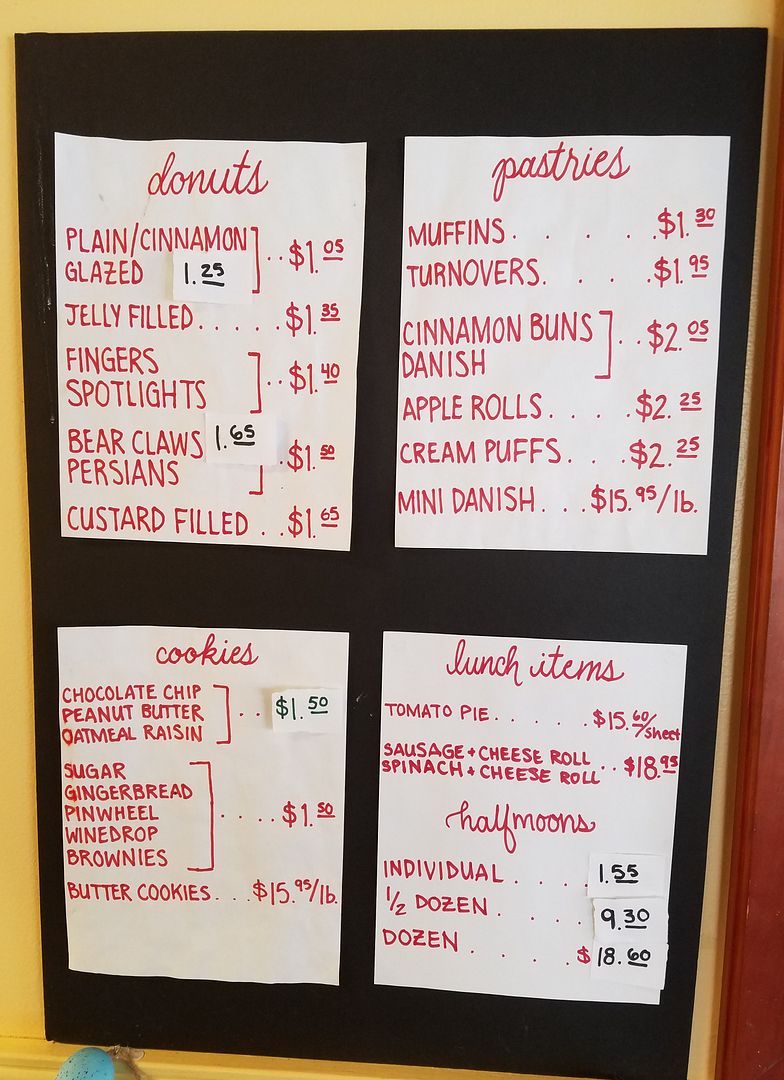 donuts
PLAIN/CINNAMON
GLAZED 1.25 .. $1.05
JELLY FILLED. . . . . . $1.35
FINGERS
SPOTLIGHTS .. $1.40
BEAR CLAWS 1.65
PERSIANS . $1.50
CUSTARD FILLED . . $1.65
pastries
MUFFINS. . . . . $1.30
TURNOVERS. . . . $1.95
CINNAMON BUNS
DANISH . . $2.05
APPLE ROLLS. . . . $2.25
CREAM PUFFS. . . $2.25
MINI DANISH. . . $15.95/lb.
cookies
CHOCOLATE CHIP
PEANUT BUTTER . . $1.50
OATMEAL RAISIN
SUGAR
GINGERBREAD
PINWHEEL . . . . $1.50
WINEDROP
BROWNIES
BUTTER COOKIES. . . $15.95/lb.
lunch items
TOMATO PIE. . . . . $15.60/sheet
SAUSAGE + CHEESE ROLL
SPINACH + CHEESE ROLL . . $18.95
halfmoons
INDIVIDUAL . . . . 1.55
1/2 DOZEN . . . . 9.30
DOZEN . . . . $ 18.60